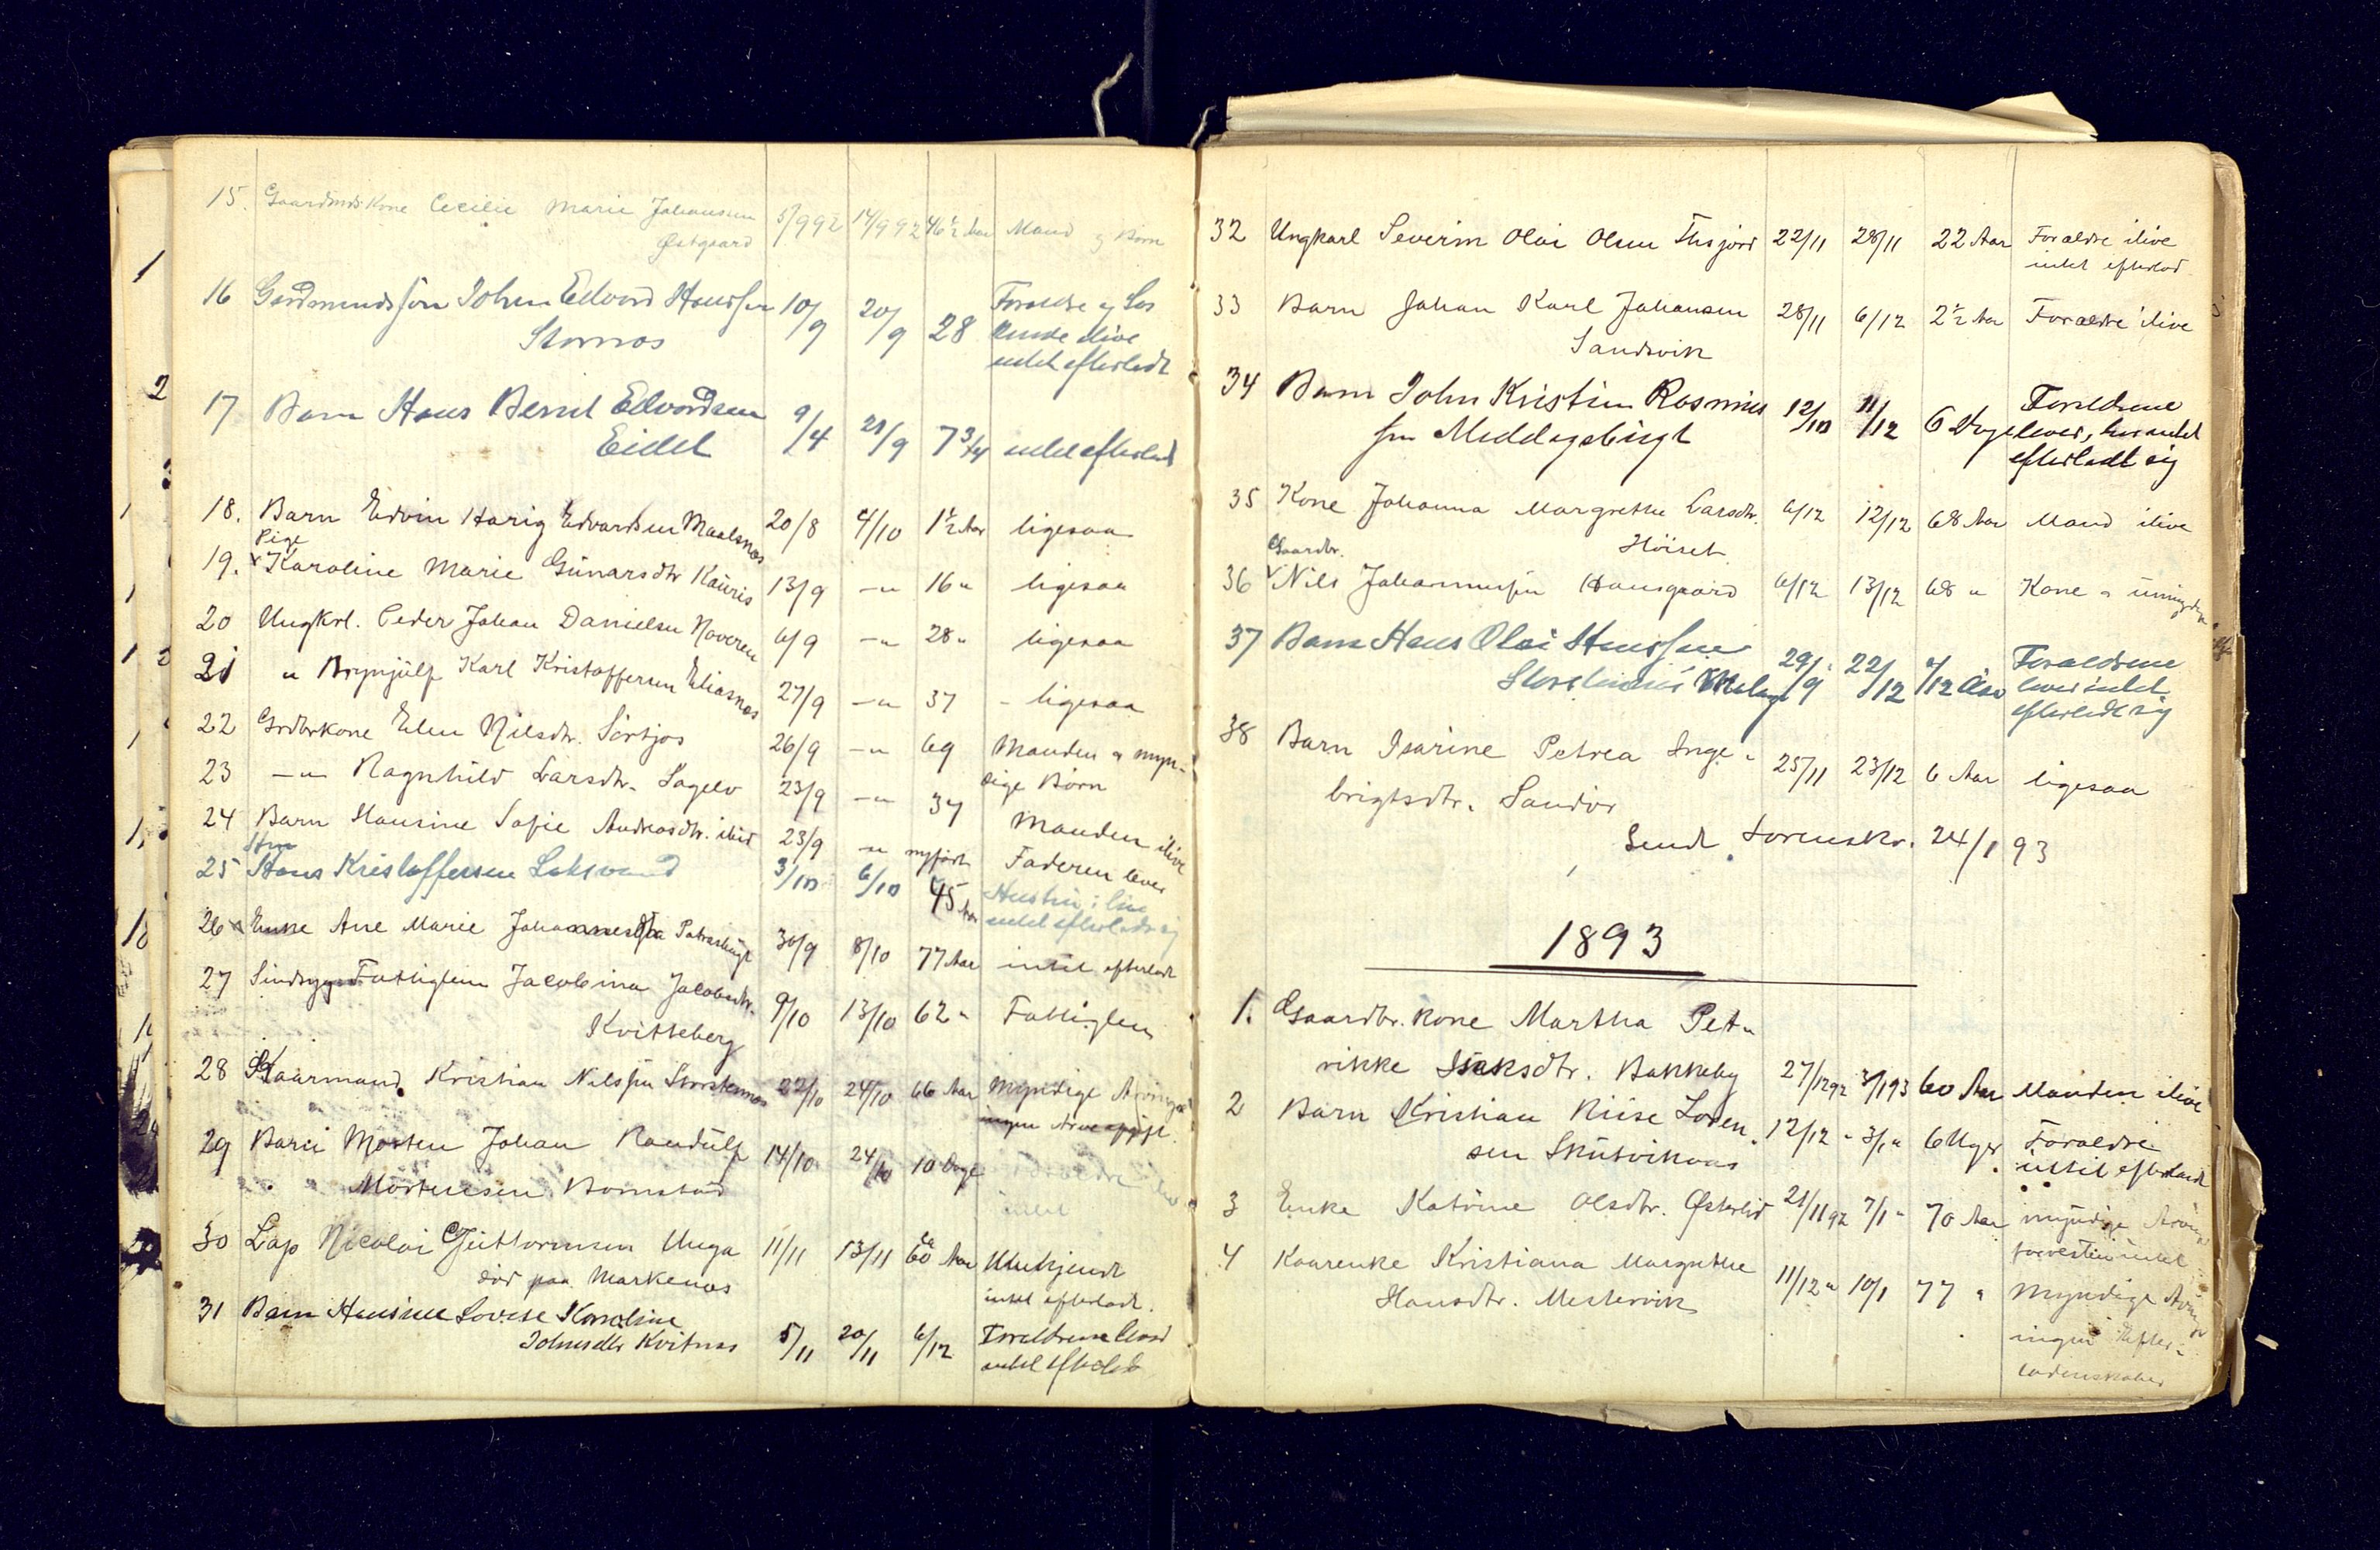 15. Gaardmds Kone Cecilie Marie Johansen 5/9 92 14/9 92 46 1/2 Aar Mand og Børn
Østgaard
16 Gardmandssøn Johan Edvard Hanssen 10/9 20/9 28 Foraldre og
Stornæs ilive
intet efterladt
17 Barn Hans Bernt Edvardsen 9/4 21/9 7 3/4 intet efterladt
Eidet
18. Barn Edvin Harig Edvardsen Maalsnæs 20/8 4/10 1 1/2 Aar ligesaa
Pige
19. Karoline Marie Gunarsdtr Kauris 13/9 -"- 16 " ligesaa
20 Ungkrl. Peder Johan Danielsen Naveren 6/9 -"- 28 " ligesaa
21 " Brynjulf Karl Kristoffersen Eliasnæs 27/9 -"- 37 - ligesaa
22 Grdbrkone Elen Nilsdtr. Sörtjos 26/9 -"- 69 Manden & myn-
dige Børn
23 -"- Ragnhild Larsdtr. Sagelv 23/9 -"- 37 Manden ilive
24 Barn Hansine Sofie Andreasdtr. ibid 23/9 -"- nyfödt Faderen lever
25 Hans Kristoffersen Laksvand 3/10 6/10 45 Aar Hustru i live
intet efterladt sig
26 Enke Ane Marie Johannesdtr 30/9 8/10 77 Aar intet efterladt
27 Sindsyg Fattiglem Jacobina Jacobsdtr. 9/10 13/10 62 " Fattiglem
Kvitteberg
28 Kaarmand Kristian Nilssen Storstennæs 22/10 24/10 66 Aar Myndige Arvinger
ingen Arveafgift.
29 Barn Morten Johan Randulf 14/10 24/10 10 Dage
Mortensen Bomstad intet
30 Lap Nicolai Guttormsen Unga 11/11 13/11 ca 60 Aar Ubekjendt
död paa Markenæs intet efterladt.
31 Barn Hansine Lovise Karoline
Johnsdtr Kvitnæs 5/11 20/11 6/12 Foreldrene lever
intet efterlat
32 Ungkarl Severin Olai Olsen 22/11 28/11 22 Aar Forældre ilive
intet efterlad
33 Barn Johan Karl Johansen 28/11 6/12 2 1/2 Aar Forældre ilive
Sandsvik
34 Barn John Kristian Rasmus 12/10 11/12 6 Dage Foreldrene
sen Meddagsbugt lever, intet
efterladt sig
35 Kone Johanna Margrethe Larsdtr. 6/12 12/12 68 Aar Mand ilive
Höiset
Gaardbr.
36 Nils Johannessen Hansgaard 6/12 13/12 68 " Kone &
37 Barn Hans Olai Hanssen 29/9 22/12 /12 Aar Foraldrene
lever intet
efterladt sig
38 Barn Isarine Petrea Inge- 25/11 23/12 6 Aar ligesaa
brigtsdtr. Sandör
Sendt Sorenskr. 24/1 93
1893
1. Gaardbr. Kone Martha Pet-
rikke Isaksdtr. Bakkeby 27/12 92 3/1 93 60 Aar Manden ilive
2 Barn Kristian Niise Loren- 12/12 " 3/1 " 6 Uger Foraldre
sen Skutvikvas intet efterladt
3 Enke Katrine Olsdtr. Østerlid 21/11 92 7/1 " 70 Aar myndige
intet
4 Kaarenke Kristiana Margrethe
Hansdtr. Mestervik 11/12 " 10/1 77 " Myndige
ingen Efter-
ladenskaber